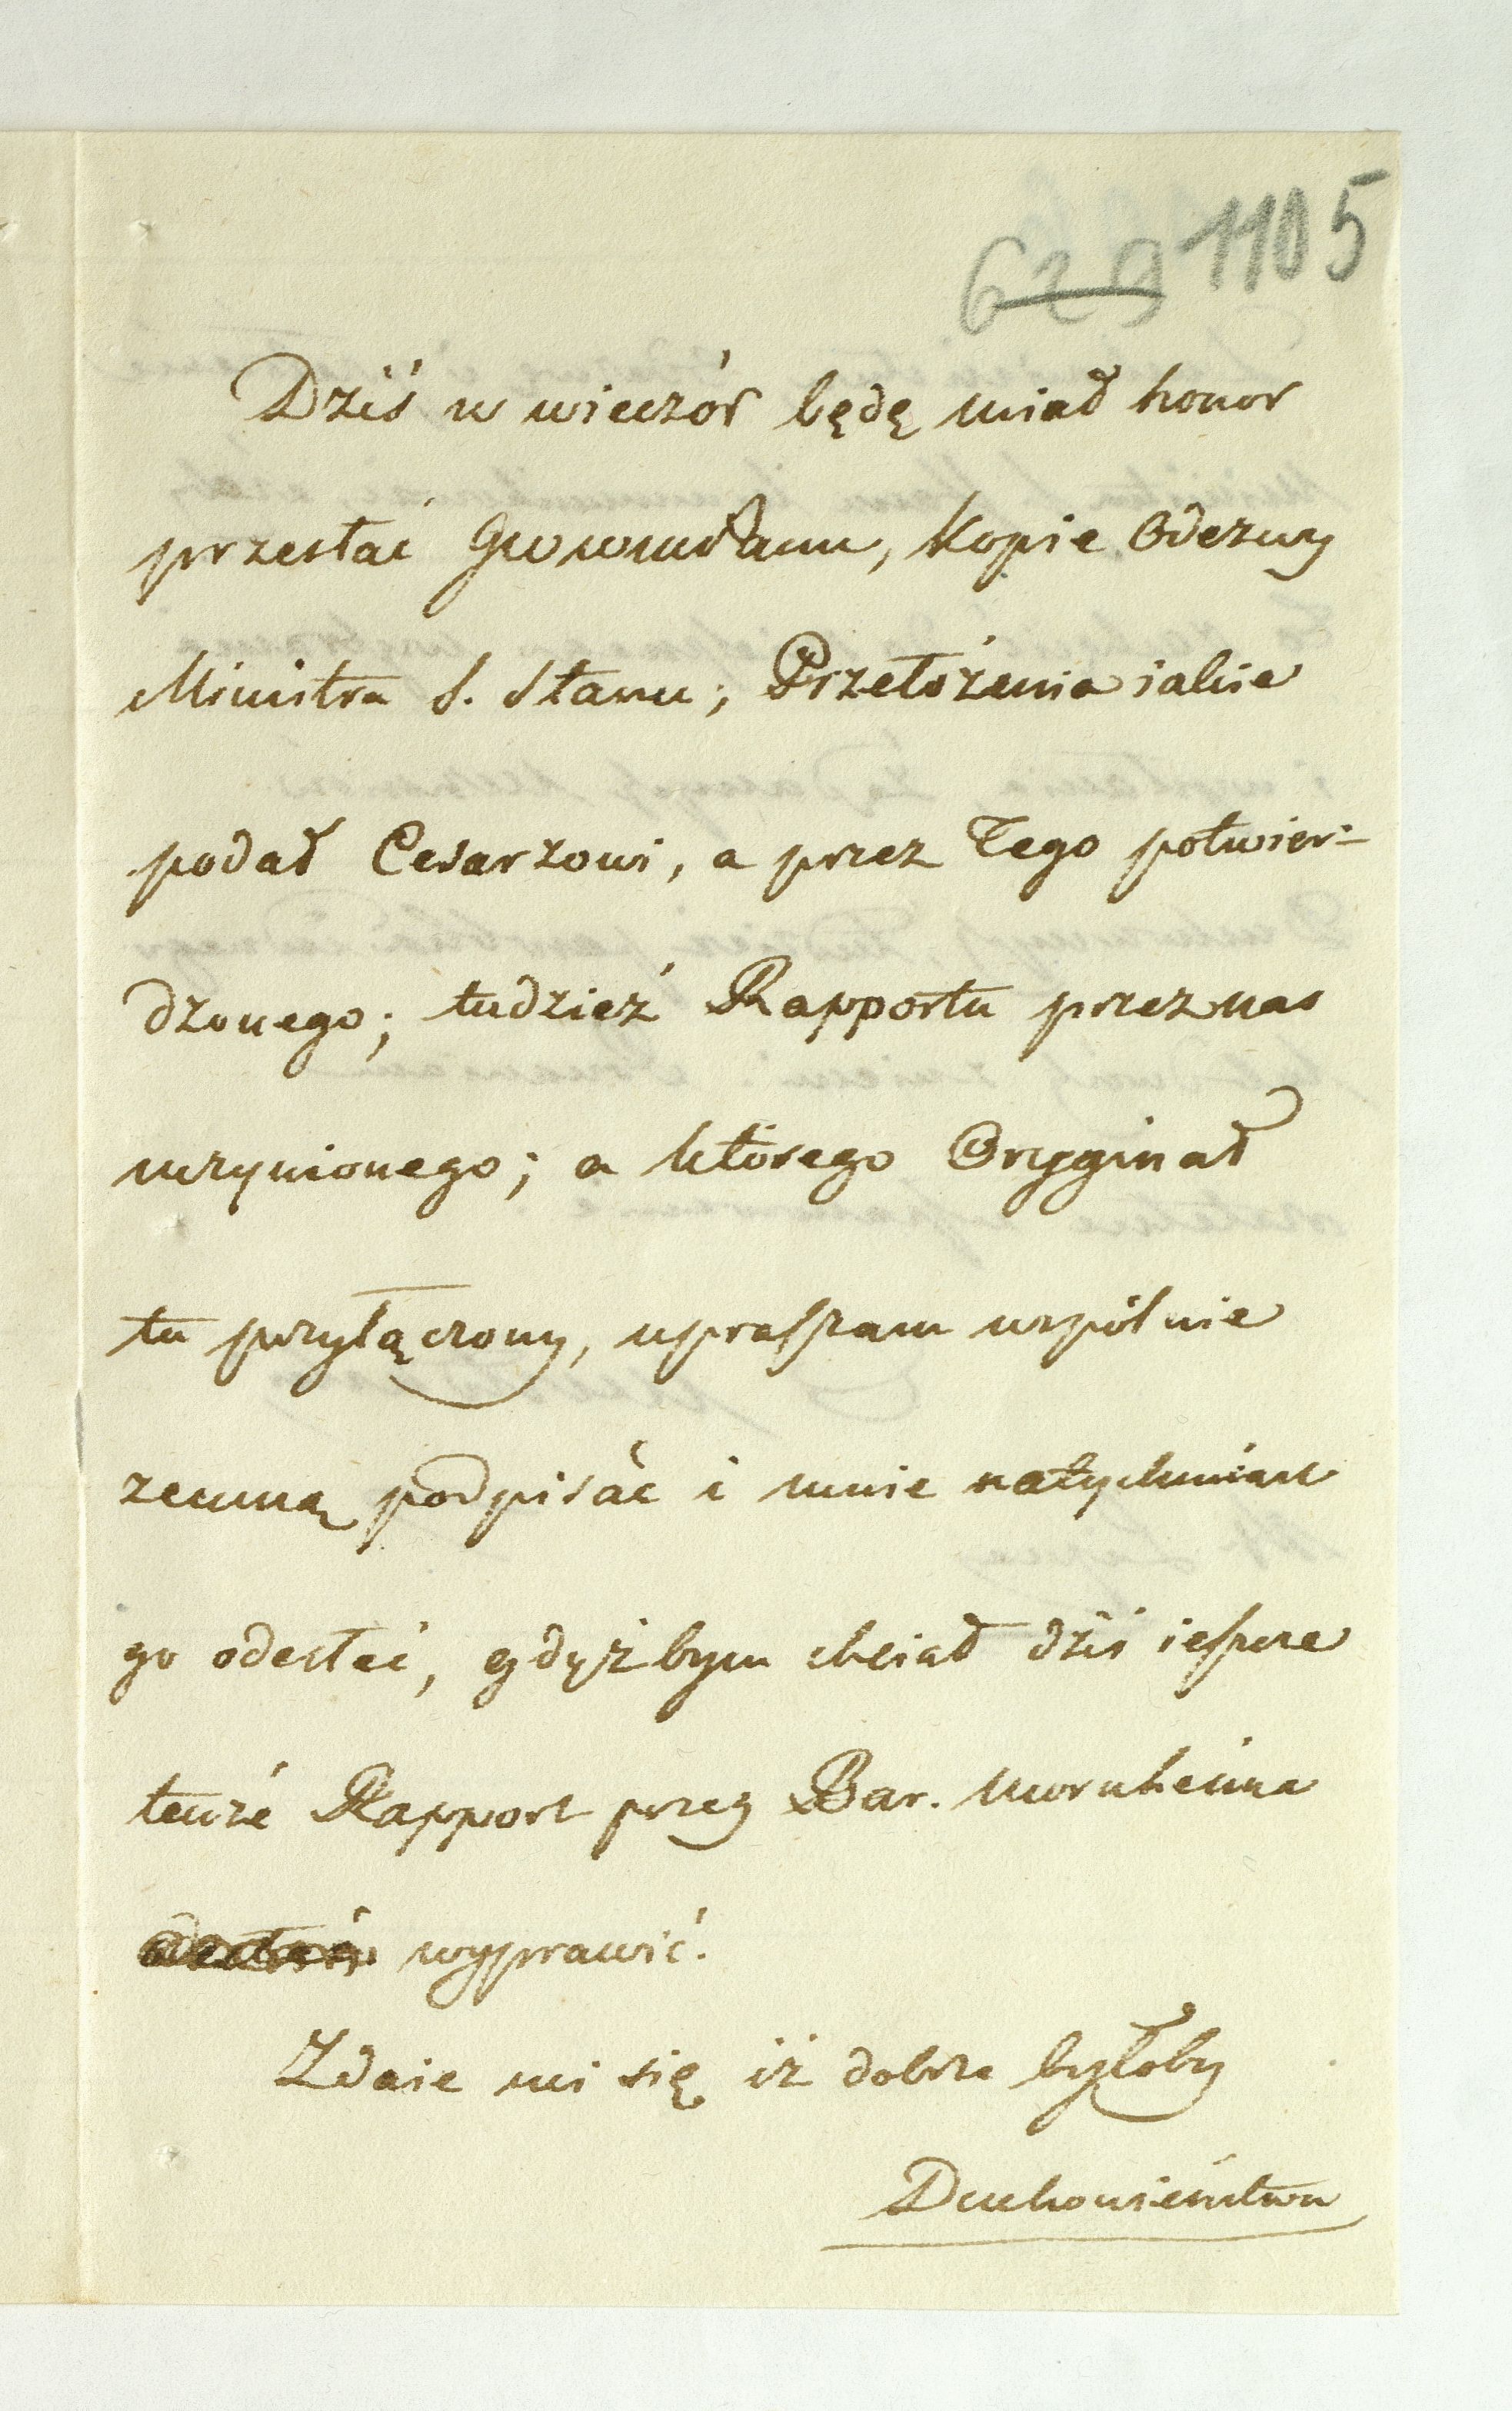 629 1105
Dziś w wieczór będę miał honor
przesłać JWWMĆPanu, Kopie Odezwy
Ministra S. Stanu; Przełożenia iakie
podał Cesarzowi, a przez Tego potwier-
dzonego; tudzież Rapportu przez nas
uczynionego; a którego Oryginał
tu przyłączony, upraszam wspólnie
zemną podpisać i mnie natychmiast
go odesłać, gdyż bym chciał dziś ieszcze
tenże Rapport przez Bar. Mornheima
wyprawić.
Zdaie mi się iż dobrze byłoby
Duchowieństwu